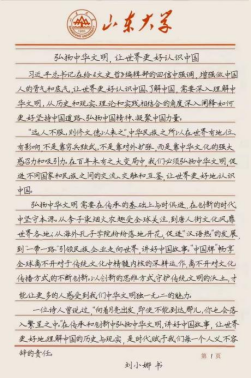 山东大学
弘扬中华文明，让世界更好认识中国
习近平总书记在给《文史哲》编辑部的回信中强调，增强做中国
人的骨气和底气，让世界更好认识中国、了解中国，需要深入理解中
华文明，从历史和现实、理论和实践相结合的角度深入阐释如何
更好坚持中国道路、弘扬中国精神、凝聚中国力量。
“远人不服，则修文德以来之”中华民族之所以在世界有地位、
有影响，不是靠穷兵黩武，不是靠对外扩张，而是靠中华文化的强大
感召力和吸引力。在百年未有之大变局中，我们必须弘扬中华文明，促
进不同国家和民族之间的交流、交融和互鉴，让世界更好地认识
中国。
弘扬中华文明需要在传承的基础上与时俱进，在创新的时代
中坚守本源。从
世界各地，从海外孔子学院纷纷落地开花，促进“汉语热”的发展
到“一带一路”引领民族企业走向世界，讲好中国故事，“中国牌”畅享
全球离不开对于传统文化中精髓内核的深耕运作，离不开对文化
传播方式的不断创新。以创新的思维方式守护传统文明的沃土，才
能让更多的人感受到我们中华文明独一无二的魅力。
一位诗人曾说过，“向着月亮出发，即使不能到达，那儿，你也会落
入繁星之中”在传承和创新中弘扬中华文明，讲好中国故事，让世界
更好地理解中国的历史与现实，是时代赋予我们每一个人义不容
辞的责任。
第1页
刘小娜 书